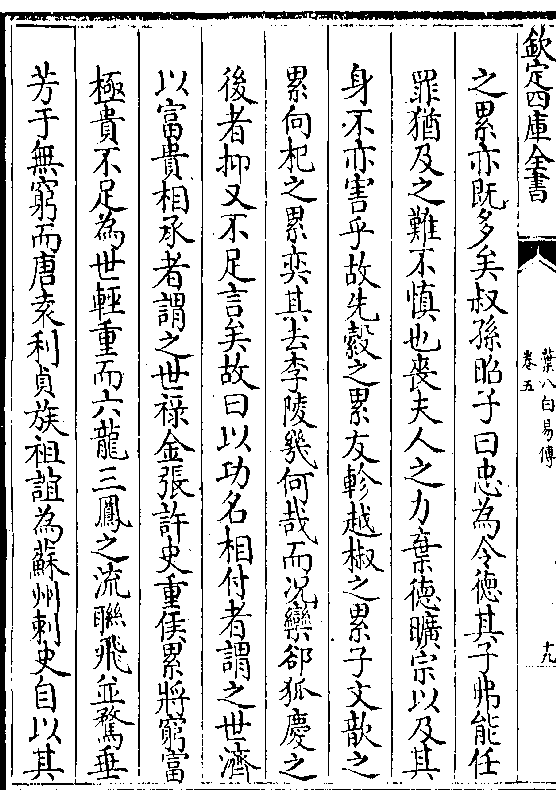 欽定四庫全書
葉八白易傳
卷五
十九
之累亦既多矣叔孫昭子曰忠為令德其子弗能任
罪猶及之難不慎也喪夫人之力棄德曠宗以及其
身不亦害乎故先縠之累友軫越椒之累子文歆之
累向杞之累奕其去李陵幾何哉而况欒郤狐慶之
後者抑又不足言矣故曰以功名相付者謂之世濟
以富貴相承者謂之世祿金張許史重侯累將窮富
極貴不足為世輕重而六龍三鳳之流聯飛並騖垂
芳于無窮而唐袁利貞族祖誼為蘇州刺史自以其